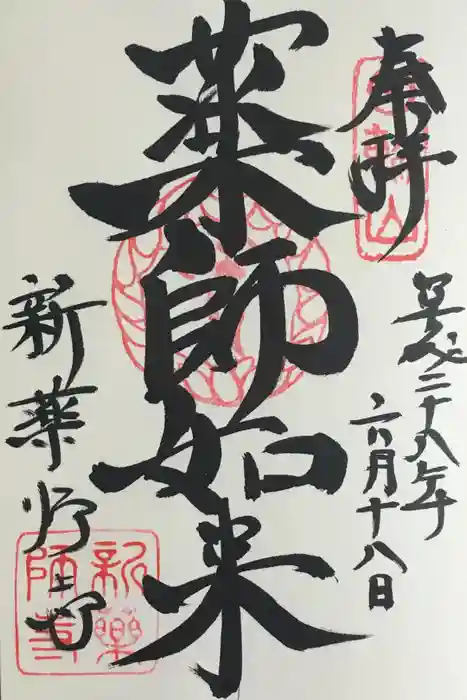 奉拝
平成二十八年
六月十八日
薬師如来
新薬師寺
新藥
師寺